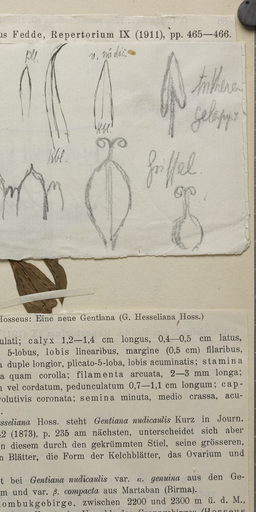 us Fedde, Repertorium IX (1911), pp. 465—466.
Antheren
Griffel.
Hosseus: Eine neue Gentiana (G. Hesseliana Hoss.)
ulati; calyx 1,2—1,4 cm longus, 0,4—0,5 cm latus,
5-lobus, lobis linearibus, margine (0,5 cm) filaribus,
a duple longior, plicato-5-loba, lobis acuminatis; stamina
a quam corolla; filamenta arcuata, 2—3 mm longa;
m vel cordatum, pedunculatum 0,7—1,1 cm longum; cap-
volutivis coronata; semina minuta, medio crassa, acu-
Hesseliana Hoss. steht Gentiana nudicaulis Kurz in Journ.
2 (1873), p. 235 am nächsten, unterscheidet sich aber
n diesem durch den gekrümmten Stiel, seine grösseren,
n Blätter, die Form der Kelchblätter, das Ovarium und
t bei Gentiana nudicaulis var. α. genuina aus den Ge-
m und var. β. compacta aus Martaban (Birma).
ombukgebirge, zwischen 2200 und 2300 m ü. d. M.,